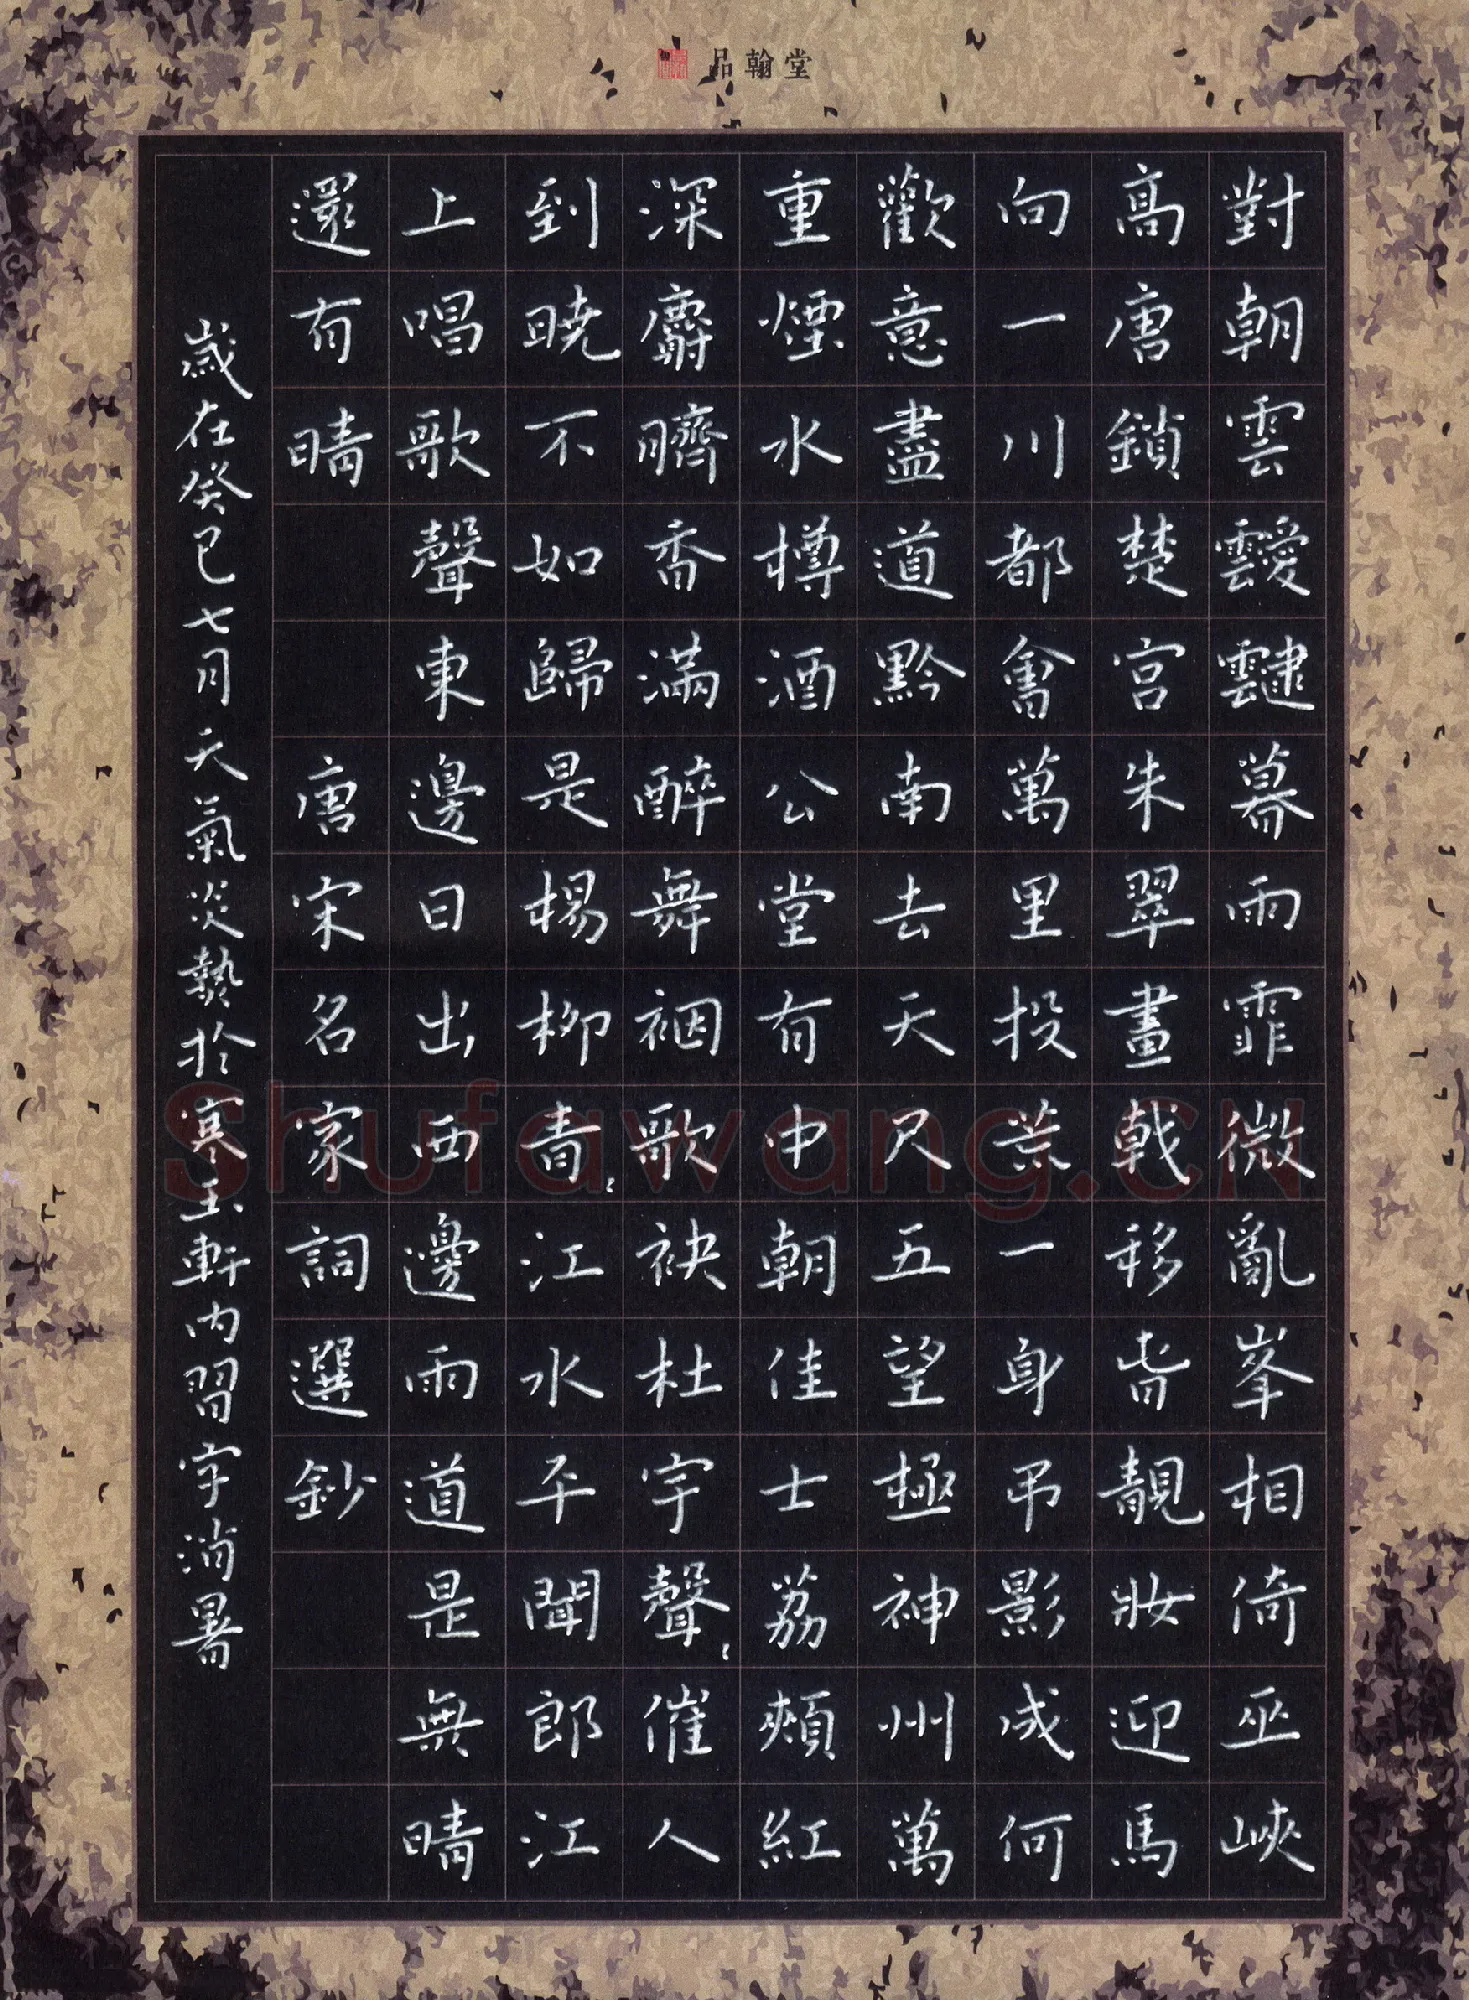 品翰堂
對朝雲靉靆暮雨霏微亂峯相倚巫峽
高唐鎖楚宮朱翠畫戟移春靚妝迎馬
向一川都會萬里投荒一身弔影成何
歡意盡道黔南去天尺五望極神州萬
重煙水樽酒公堂有中朝佳士荔頰紅
深麝臍香滿醉舞裀歌袂杜宇聲聲催人
到曉不如歸是楊柳青青江水平聞郎江
上唱歌聲東邊日出西邊雨道是無晴
還有晴 唐宋名家詞選鈔
歲在癸巳七月天氣炎熱於寒玉軒內習字消暑
Shufawang.CN